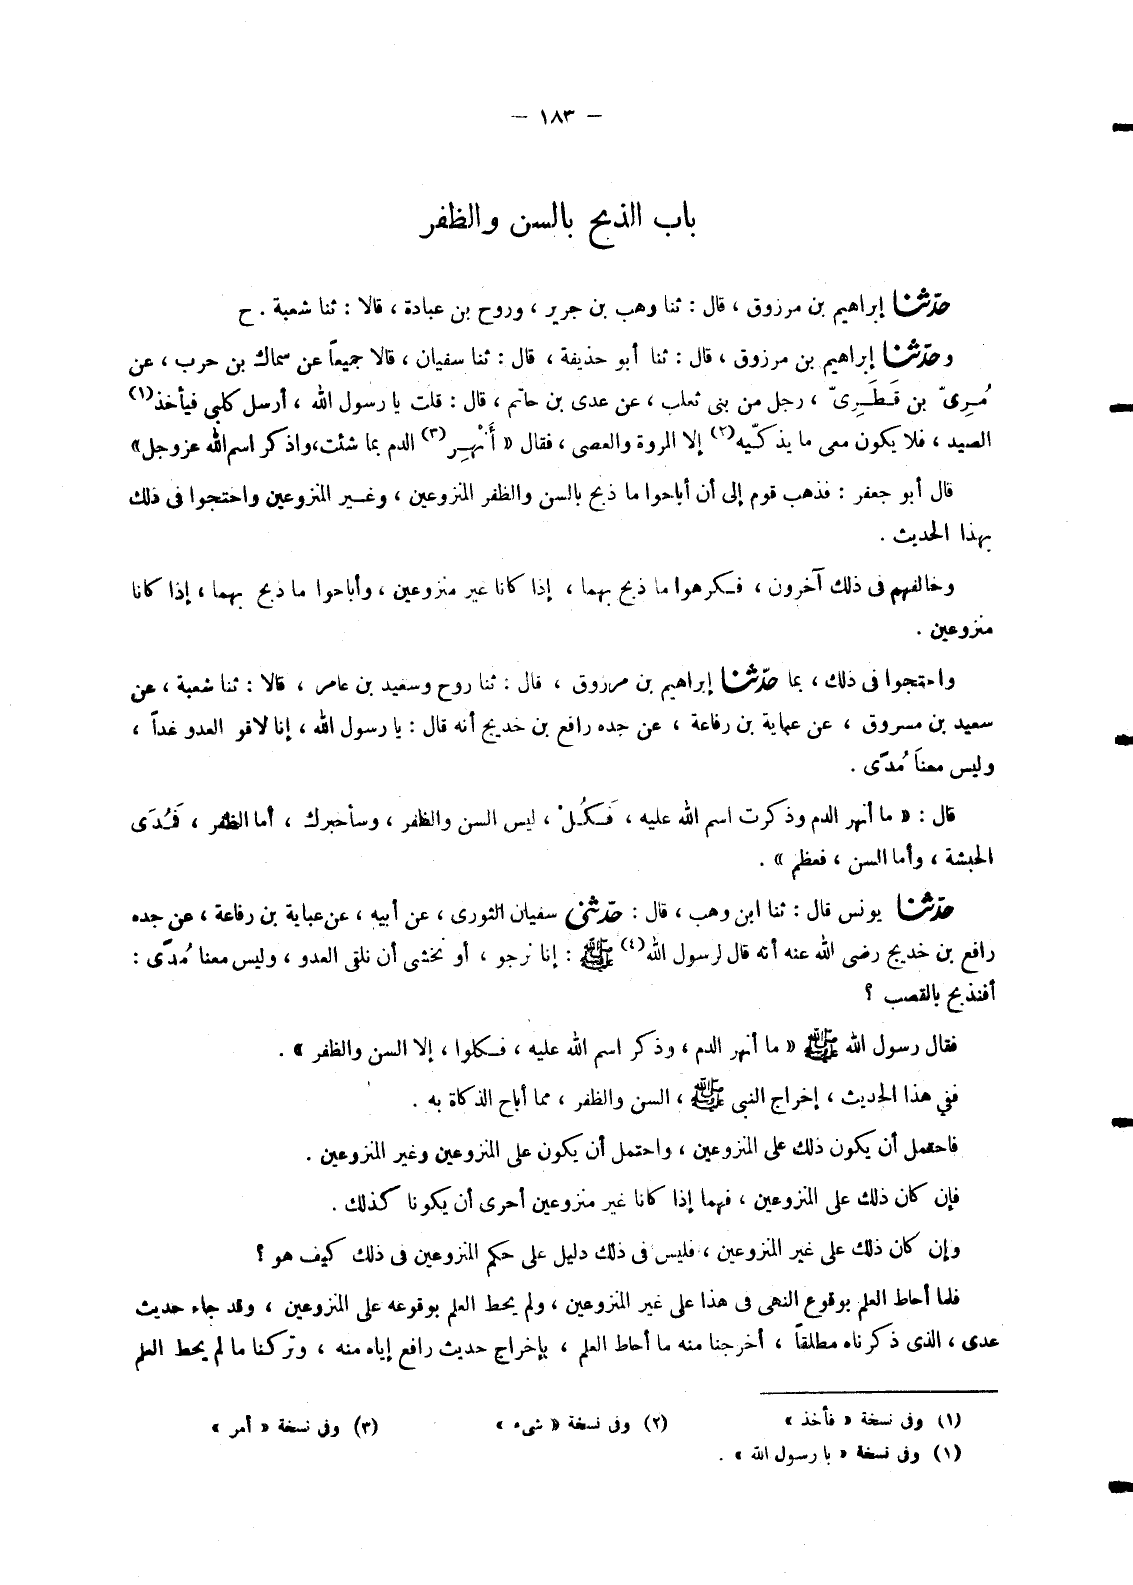 — ١٨٣ —
باب الذبح بالسن والظفر
حدّثنا إبراهيم بن مرزوق ، قال : ثنا وهب بن جرير ، وروح بن عبادة ، قالا : ثنا شعبة . ح
وحدّثنا إبراهيم بن مرزوق ، قال : ثنا أبو حذيفة ، قال : ثنا سفيان ، قالا جميعاً عن سماك بن حرب ، عن
مُرِىّ بن قَطَرِىّ ، رجل من بنى ثعلب ، عن عدى بن حاتم ، قال : قلت يا رسول الله ، أرسل كلبي فيأخذ(١)
الصيد ، فلا يكون معى ما يذكّيه(٢) إلا المروة والعصى ، فقال « أَنْهِر(٣) الدم بما شئت،واذكر اسم الله عز وجل»
قال أبو جعفر : فذهب قوم إلى أن أباحوا ما ذبح بالسن والظفر المنزوعين ، وغير المنزوعين واحتجوا فى ذلك
بهذا الحديث .
وخالفهم فى ذلك آخرون ، فكرهوا ما ذبح بهما ، إذا كانا غير منزوعين ، وأباحوا ما ذبح بهما ، إذا كانا
منزوعين .
واحتجوا فى ذلك ، بما حدّثنا إبراهيم بن مرزوق ، قال : ثنا روح وسعيد بن عامر ، قالا : ثنا شعبة ، عن
سعيد بن مسروق ، عن عباية بن رفاعة ، عن جده رافع بن خديج أنه قال : يا رسول الله ، إنا لاقو العدو غداً ،
وليس معنا مُدًى .
قال : « ما أنهر الدم وذكرت اسم الله عليه ، فَكُلْ ، ليس السن والظفر ، وسأخبرك ، أما الظفر ، فَمُدَى
الحبشة ، وأما السن ، فعظم » .
حدّثنا يونس قال : ثنا ابن وهب ، قال : حدّثنى سفيان الثورى ، عن أبيه ، عن عباية بن رفاعة ، عن جده
رافع بن خديج رضى الله عنه أنه قال لرسول الله(٤) ﷺ : إنا نرجو ، أو نخشى أن نلقى العدو ، وليس معنا مُدًى :
أفنذبح بالقصب ؟
فقال رسول الله ﷺ « ما أنهر الدم ، وذكر اسم الله عليه ، فكلوا ، إلا السن والظفر » .
ففي هذا الحديث ، إخراج النبى ﷺ ، السن والظفر ، مما أباح الذكاة به .
فاحتمل أن يكون ذلك على المنزوعين ، واحتمل أن يكون على المنزوعين وغير المنزوعين .
فإن كان ذلك على المنزوعين ، فهما إذا كانا غير منزوعين أحرى أن يكونا كذلك .
وإن كان ذلك على غير المنزوعين ، فليس فى ذلك دليل على حكم المنزوعين فى ذلك كيف هو ؟
فلما أحاط العلم بوقوع النهى فى هذا على غير المنزوعين ، ولم يحط العلم بوقوعه على المنزوعين ، وقد جاء حديث
عدى ، الذى ذكرناه مطلقاً ، أخرجنا منه ما أحاط العلم ، بإخراج حديث رافع إياه منه ، وتركنا ما لم يحط العلم
(١) وفى نسخة « فأخذ »
(٢) وفى نسخة « شىء »
(٣) وفى نسخة « أمر »
(١) وفى نسخة « يا رسول الله » .